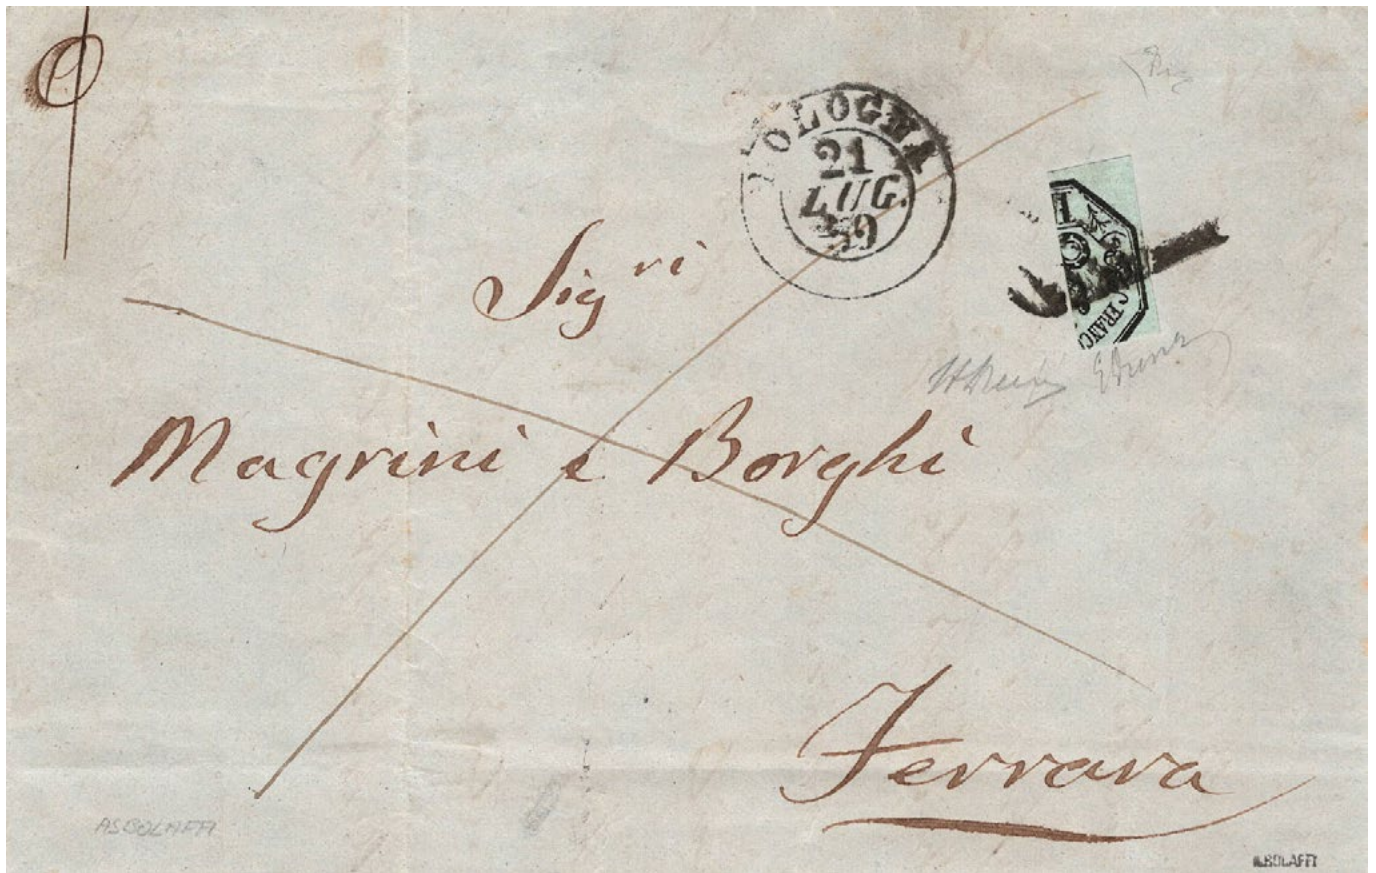 BOLOGNA
21
LUG.
59
FRANC
Sig.ri
Magrini e Borghi
Ferrara
ASBOLAFFI
A.BOLAFFI